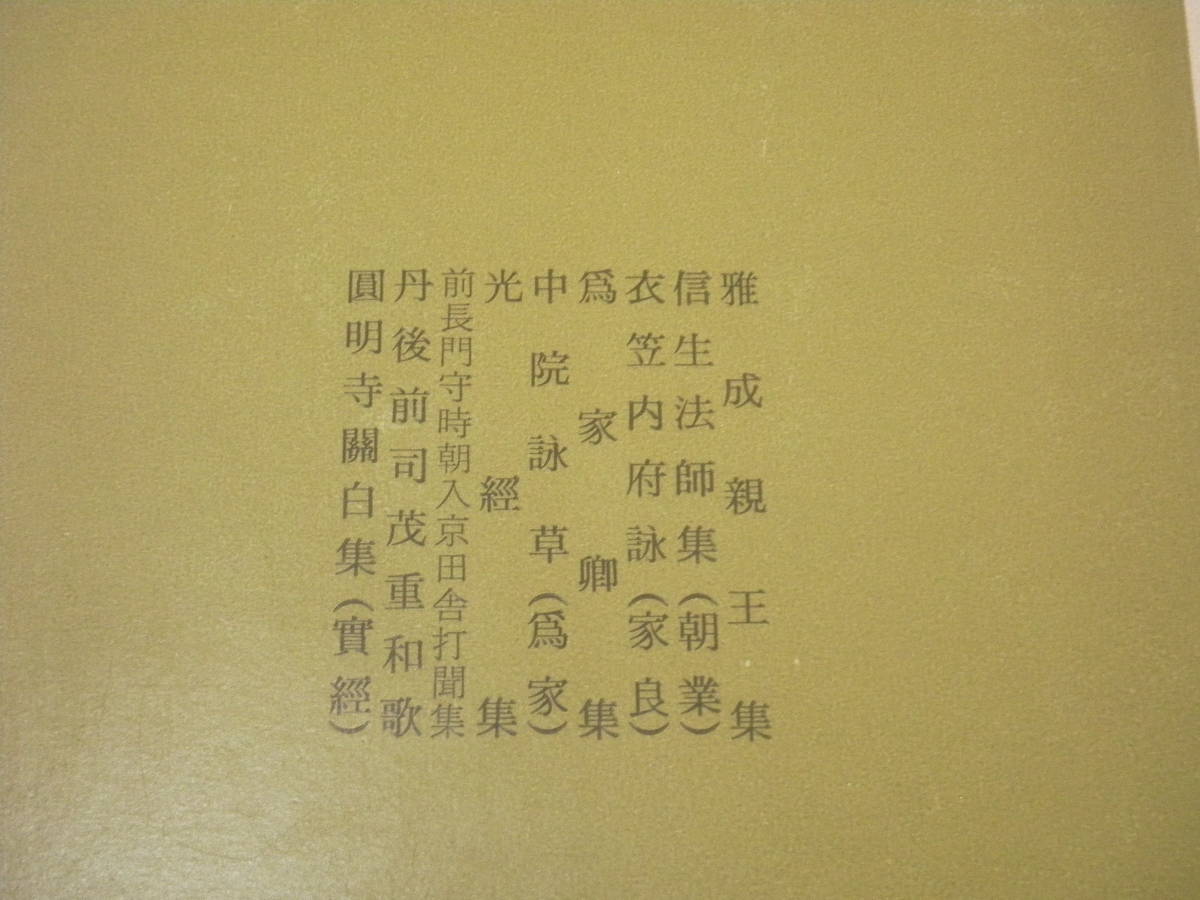 雅成親王集
信生法師集(朝業)
衣笠内府詠(家良)
爲家卿集
中院詠草(爲家)
光經集
前長門守時朝入京田舎打聞集
丹後前司茂重和歌
圓明寺關白集(實經)